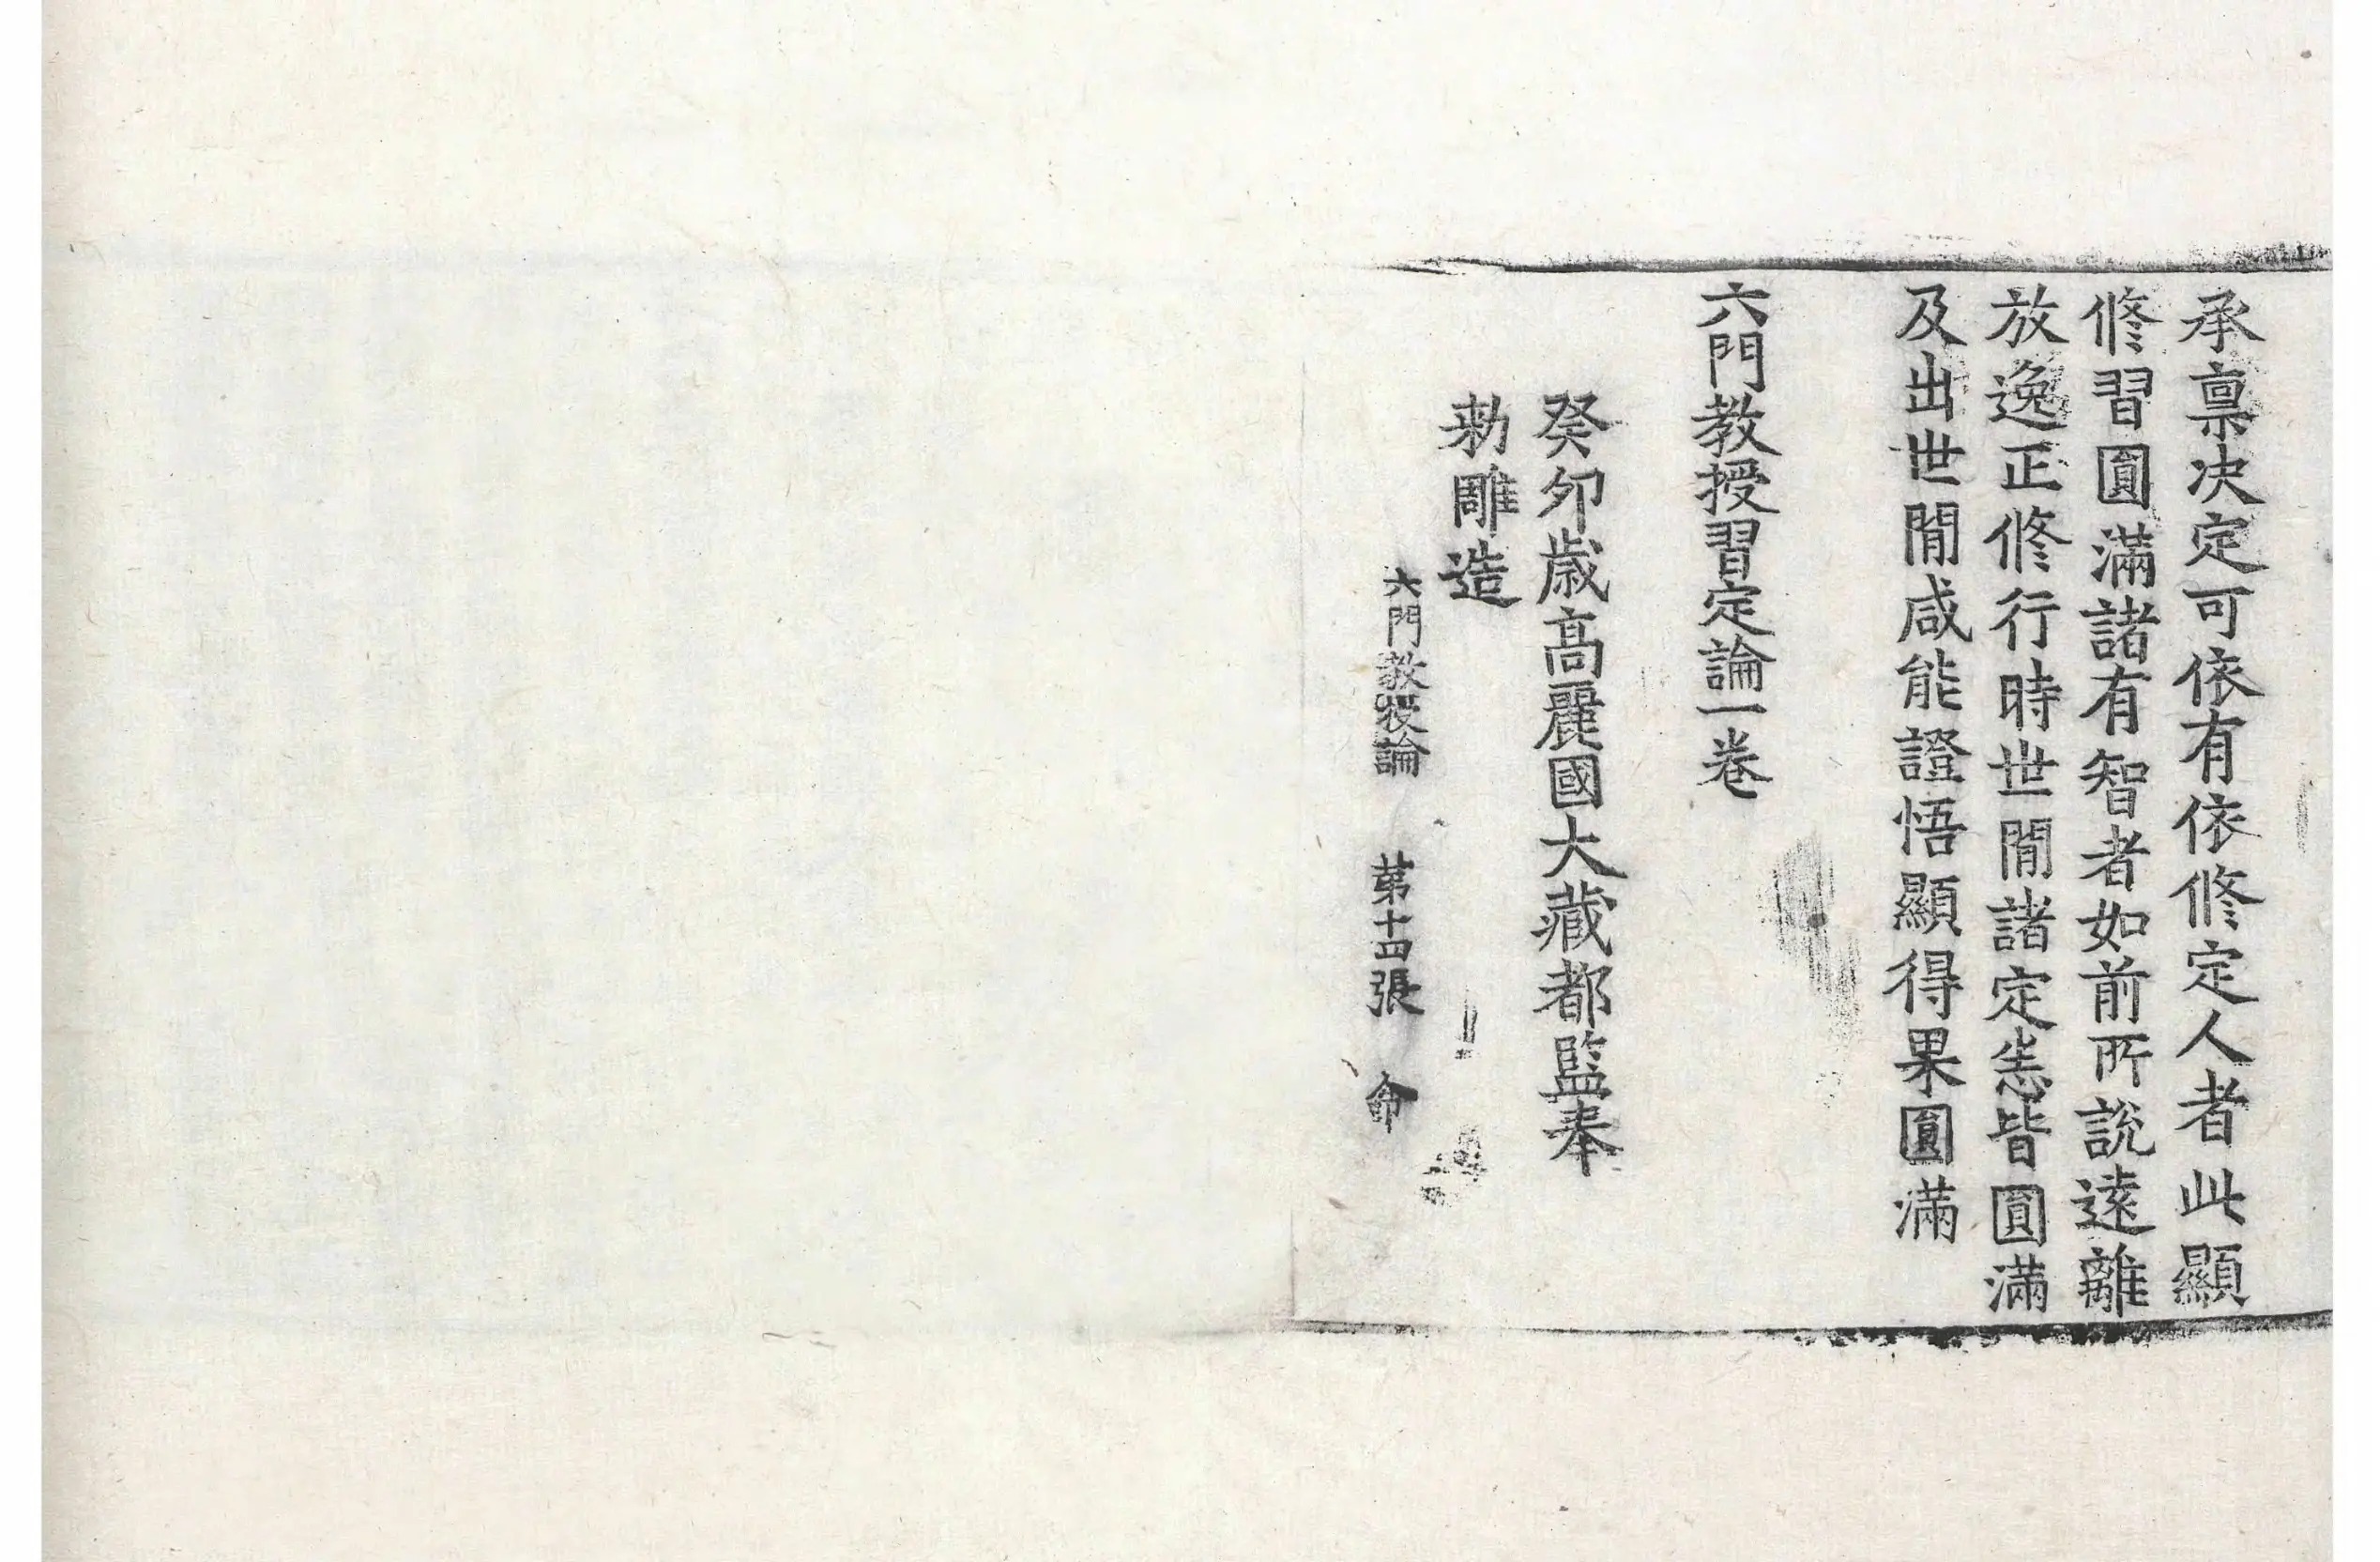 承禀决定可依有依修定人者此顯
修習圓滿諸有智者如前所說遠離
放逸正修行時世閒諸定悉皆圓滿
及出世閒咸能證悟顯得果圓滿
六門教授習定論一卷
癸卯歲高麗國大藏都監奉
勑雕造
六門教授論 第十四張 命